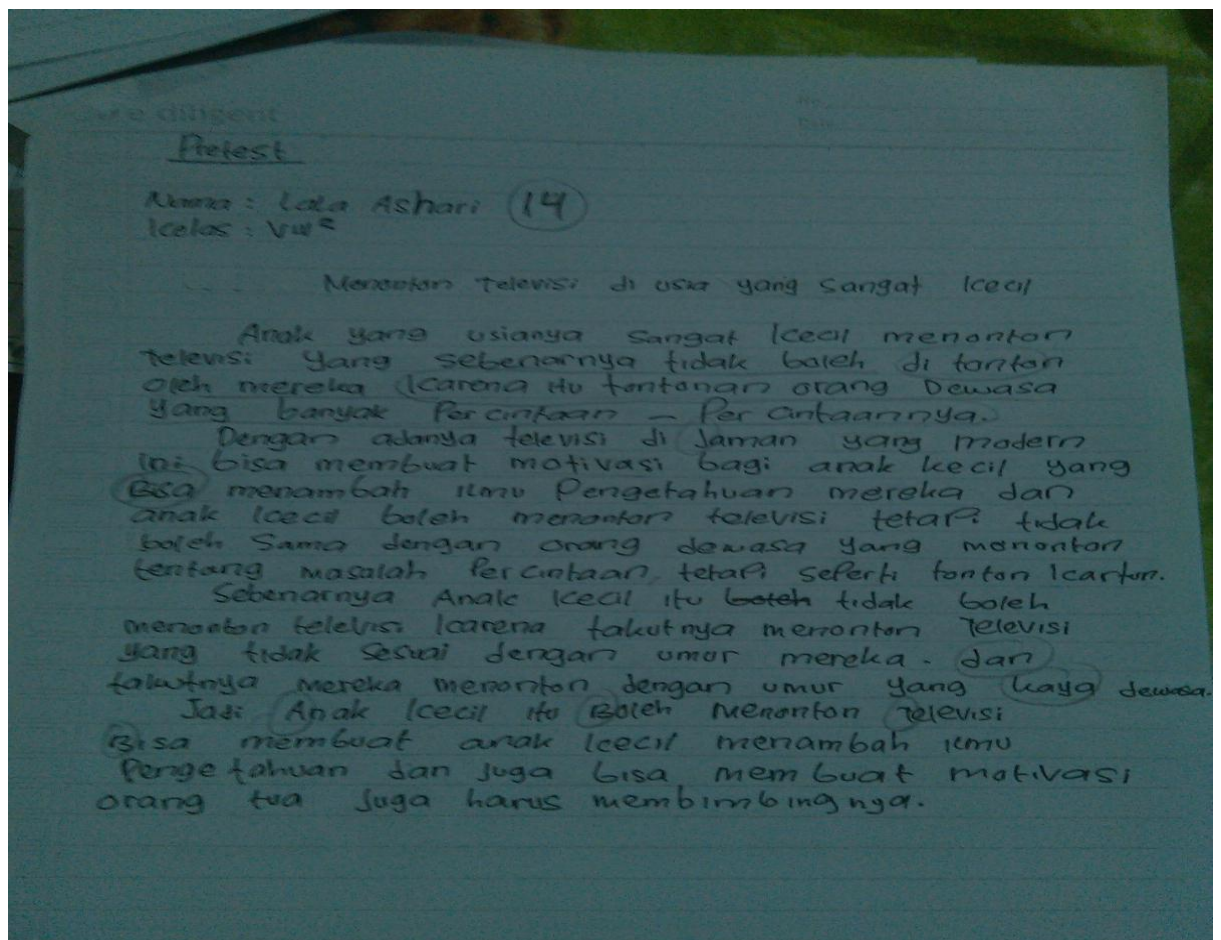 diligent
No
Date
Pretest
Nama : Lala Ashari 14
Kelas : VIII C
Menonton Televisi di usia yang Sangat kecil
Anak yang usianya Sangat kecil menonton
televisi yang sebenarnya tidak boleh di tonton
oleh mereka karena itu tontonan orang Dewasa
yang banyak Percintaan - Percintaannya.
Dengan adanya televisi di Jaman yang modern
ini bisa membuat motivasi bagi anak kecil yang
Bisa menambah ilmu Pengetahuan mereka dan
anak kecil boleh menonton televisi tetapi tidak
boleh Sama dengan orang dewasa yang menonton
tentang masalah Percintaan, tetapi seperti tonton karton.
Sebenarnya Anak kecil itu boleh tidak boleh
menonton televisi karena takutnya menonton Televisi
yang tidak Sesuai dengan umur mereka. dan
takutnya mereka menonton dengan umur yang kaya dewasa.
Jadi Anak kecil itu Boleh Menonton Televisi
Bisa membuat anak kecil menambah ilmu
Pengetahuan dan Juga bisa membuat motivasi
orang tua Juga harus membimbingnya.